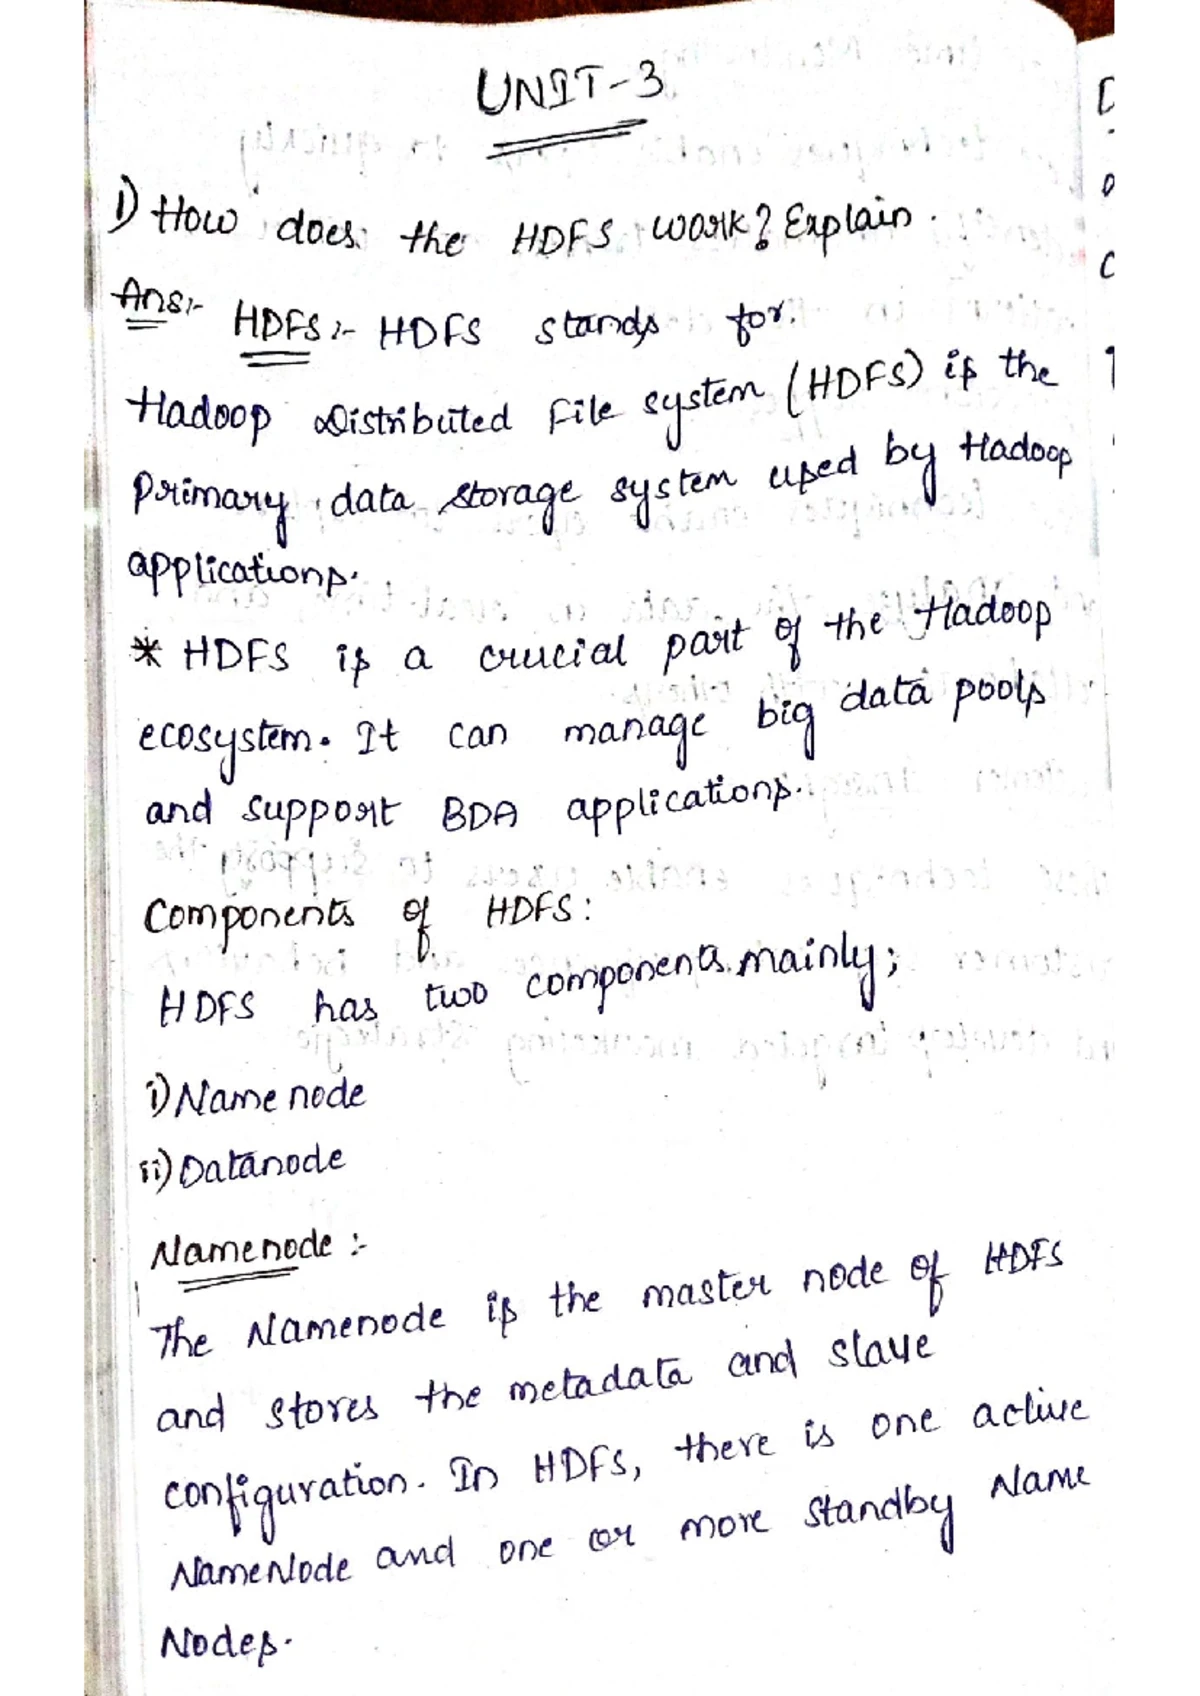 UNIT-3
1) How does the HDFS work? Explain.
Ans:- HDFS:- HDFS stands for.
Hadoop Distributed File system (HDFS) is the
primary data storage system used by Hadoop
applications.
* HDFS is a crucial part of the Hadoop
ecosystem. It can manage big data pools
and support BDA applications.
Components of HDFS:
HDFS has two components mainly;
i) Name node
ii) Datanode
Namenode :-
The Namenode is the master node of HDFS
and stores the metadata and slave
configuration. In HDFS, there is one active
NameNode and one or more standby Name
Nodes.